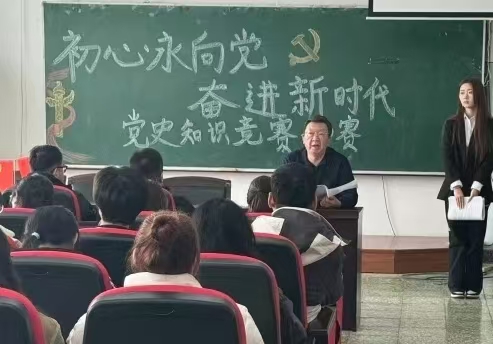 初心永向党
奋进新时代
党史知识竞赛 赛